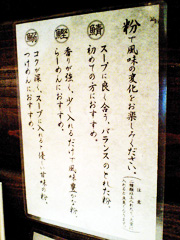 粉で風味の変化をお楽しみください。
鯖
スープに良く合う、バランスのとれた粉。
初めての方におすすめ。
鰹
香りが強く、少し入れるだけで風味豊かな粉。
らーめんにおすすめ。
コクが深く、スープに入れると優しい甘味の粉。
つけめんにおすすめ。